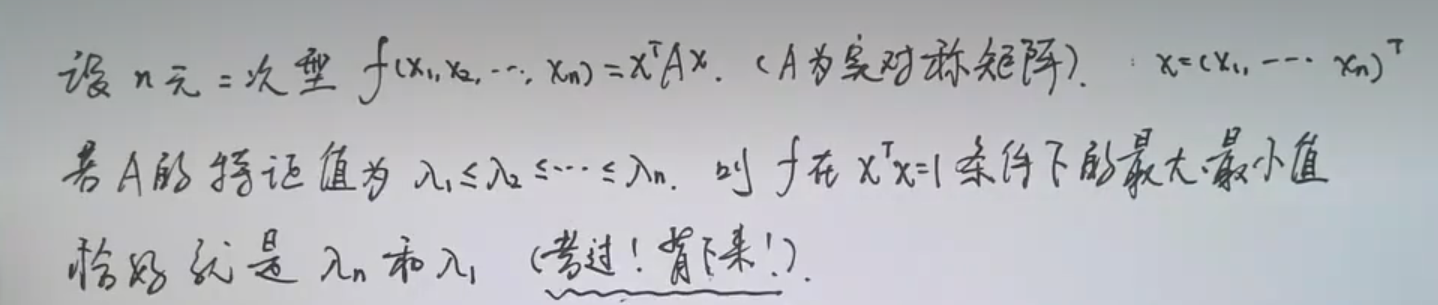 设 n元二次型 f(x₁,x₂,…,xₙ)=xᵀAx. (A为实对称矩阵). x=(x₁,…xₙ)ᵀ
若A的特征值为 λ₁≤λ₂≤…≤λₙ. 则 f在 xᵀx=1 条件下的最大.最小值
恰好就是 λₙ 和 λ₁ (考过!背下来!).